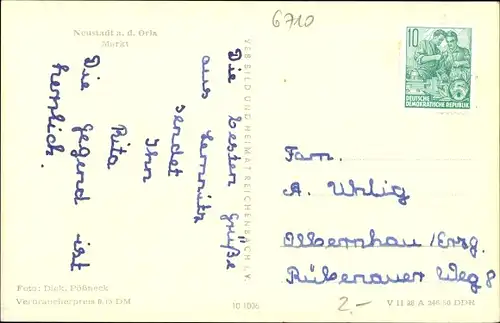 Neustadt a. d. Orla
Markt
6710
10
DEUTSCHE
DEMOKRATISCHE REPUBLIK
Die besten Grüße
aus
sendet
Ihn
Rita
Die Gegend ist
herrlich.
VEB BILD UND HEIMAT REICHENBACH I. V.
Fam.
A. Uhlig
Olbernhau /Erzg.
Rübenauer Weg 8
Foto: Dick, Pößneck
Verbraucherpreis 0,15 DM
10 1036
2.-
V 11 28 A 340/60 DDR